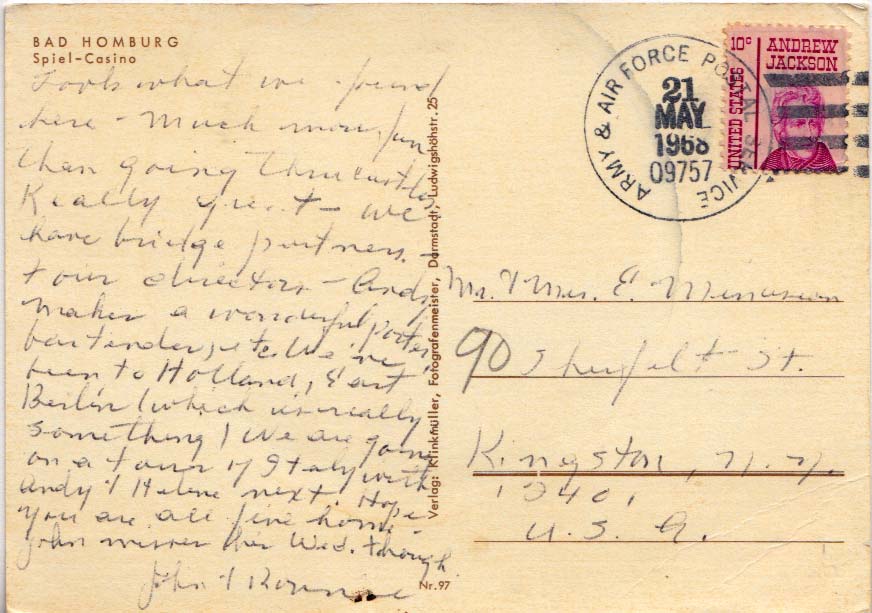 BAD HOMBURG
Spiel-Casino
Look what we found
here - Much more fun
than going thru castles
Really great - we
have bridge partners -
tour directors - Andy
makes a wonderful porter
bartender, etc. We've
been to Holland, East
Berlin (which is really
something) We are going
on a tour of Italy with
Andy & Helene next. Hope
you are all fine home -
John misses his Wed. though
John &
Verlag: Klinkmüller, Fotografenmeister, Darmstadt, Ludwigshöhstr. 25
Nr. 97
ARMY & AIR FORCE POSTAL SERVICE
21
MAY
1968
09757
10c ANDREW
JACKSON
UNITED STATES
Mr. & Mrs. E. Minasian
90 St.
Kingston, N.Y.
12401
U.S.A.